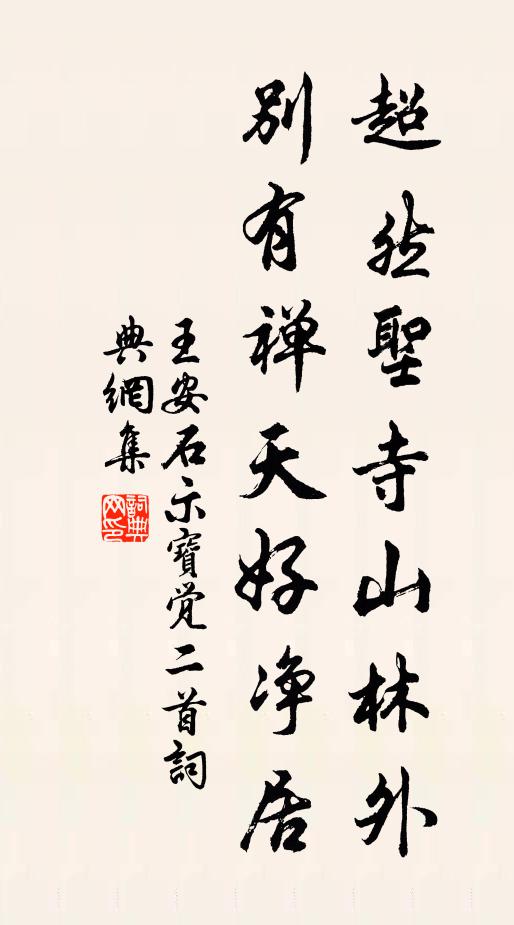 超然聖寺山林外
別有禅天好净居
王安石示寶覚二首詞
典網集
詞典网印